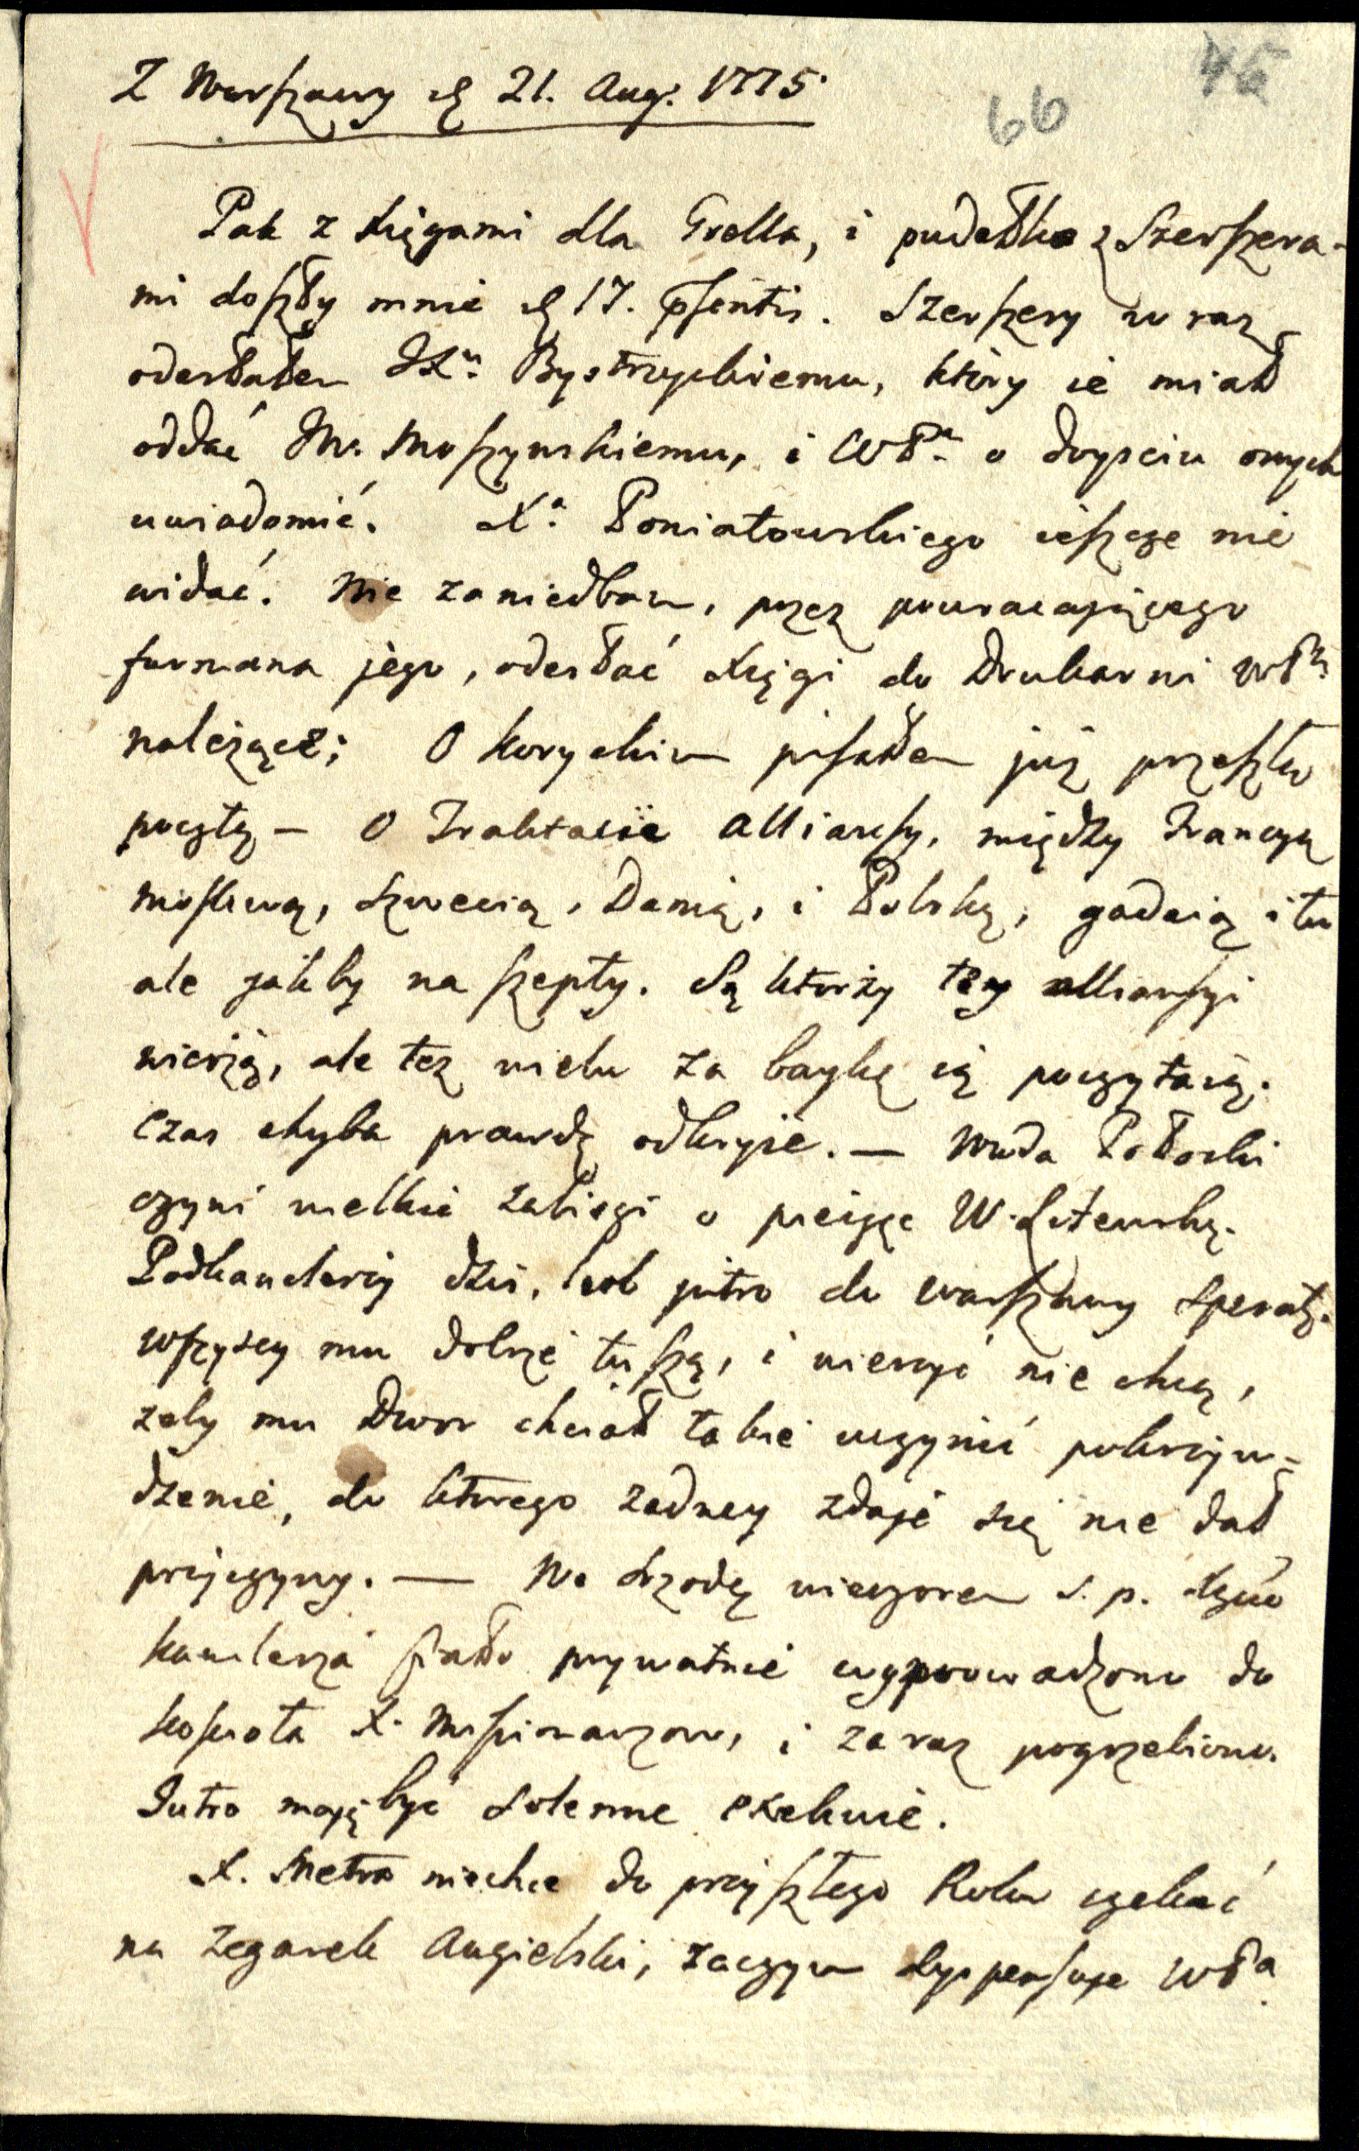 45
66
Z Warszawy d. 21. Aug. 1775.
Pak z Xięgami dla Grella, i pudełko z Szerszera-
mi doszły mnie d. 17. psentis. Szerszery zu raz
odesłałem JX. Bystrzyckiemu, ktory ie miał
oddać Jm. Moszynskiemu, i WPa o doysciu onych
uwiadomić. Xa Poniatowskiego ieszcze nie
widać. Nie zaniedbam, przez powracającego
furmana jego, odesłać Xięgi do Drukarni WPa
należące; O Koryckim pisałem już przeszłą
pocztą — O Traktacie Alliansy, między Francyą
Moskwą, Szwecią, Danią, i Polską, gadaią i tu
ale jakby na szepty. Są ktorzy tey alliansyi
wierzą, ale też wielu za baykę ią poczytaią.
Czas chyba prawdę odkryie. — Wwda Połocki
czyni wielkie zabiegi o pieczęć W. Litewską.
Podkanclerzy dziś, lub jutro do Warszawy speraty.
Wszyscy mu dobrze tuszą, i wierzyć nie chcą,
zeby mu Dwor chciał takie uczynić pokrzyw=
dzenie, do ktorego zadney zdaje się nie dał
przyczyny. — We Srzodę wieczorem s. p. Xcia
Kanclerza ciało prywatnie wyprowadzono do
koscioła X. Missionarzow, i zaraz pogrzebiono.
Jutro mają być solenne exekwie.
X. Metra niechce do przyszłego Roku czekać
na zegarek Angielski, zaczym dyspensuje WPa